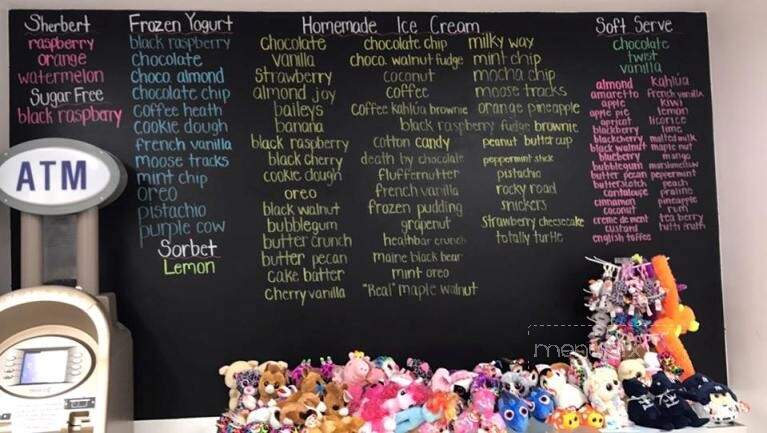 Sherbert
raspberry
orange
watermelon
Sugar Free
black raspberry
Frozen Yogurt
black raspberry
chocolate
choco. almond
chocolate chip
coffee heath
cookie dough
french vanilla
moose tracks
mint chip
oreo
pistachio
purple cow
Sorbet
Lemon
Homemade Ice Cream
chocolate
vanilla
strawberry
almond joy
baileys
banana
black raspberry
black cherry
cookie dough
oreo
black walnut
bubblegum
butter crunch
butter pecan
cake batter
Cherry vanilla
chocolate chip
choco. walnut fudge
coconut
coffee
coffee kahlúa brownie
black raspberry fudge brownie
cotton candy
death by chocolate
fluffernutter
french vanilla
frozen pudding
grapenut
heathbar crunch
maine black bear
mint oreo
"Real" maple walnut
milky way
mint chip
mocha chip
moose tracks
orange pineapple
peanut butter cup
peppermint stick
pistachio
rocky road
snickers
Strawberry cheesecake
totally turtle
Soft Serve
chocolate
twist
vanilla
almond
amaretto
apple
apple pie
apricot
blackberry
blackcherry
black walnut
blueberry
bubblegum
butter pecan
butterscotch
cantaloupe
cinnamon
coconut
creme de ment
custard
english toffee
kahlúa
french vanilla
kiwi
lemon
licorice
lime
malted milk
maple nut
mango
marshmallow
peppermint
peach
praline
pineapple
rum
tea berry
tutti fruiti
ATM